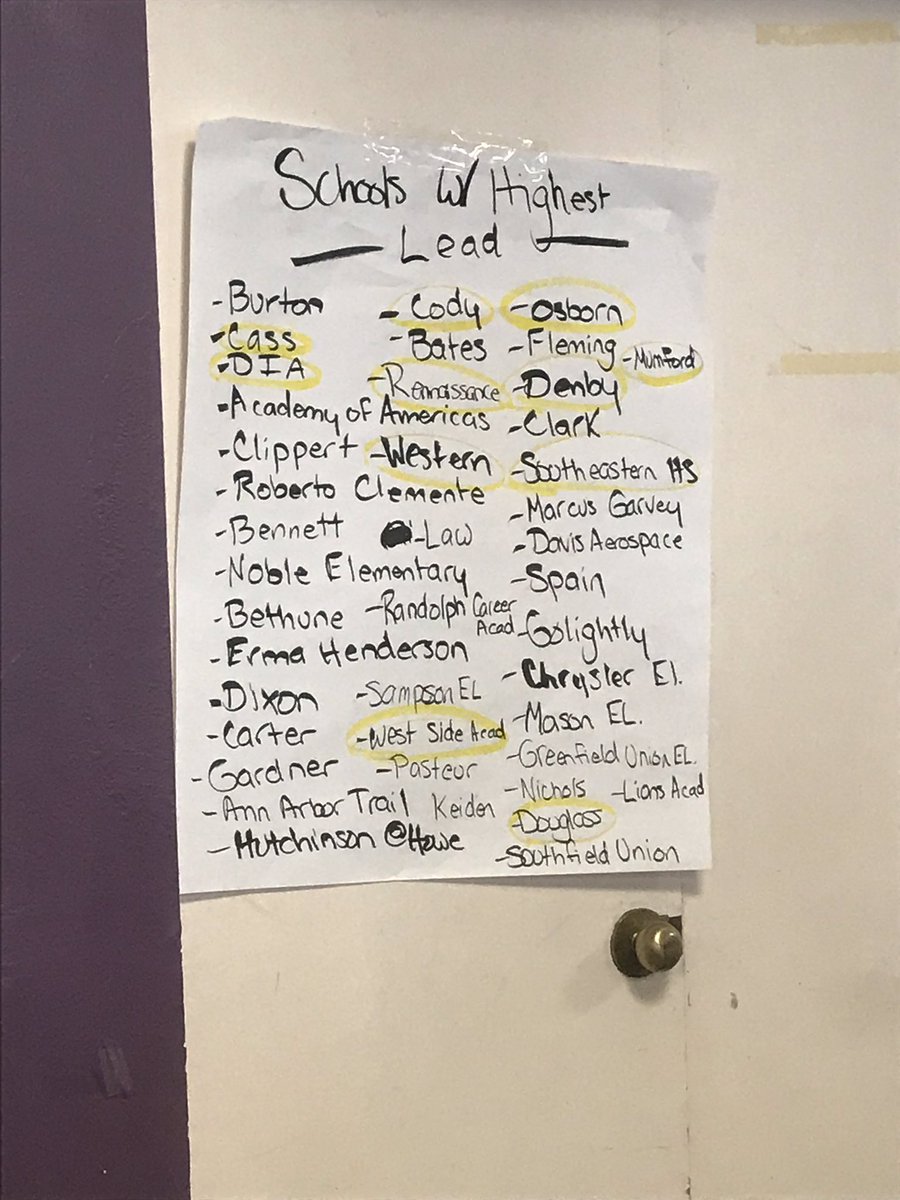 Schools W/ Highest
Lead
- Burton
- Cass
- DIA
- Academy of Americas
- Clippert
- Roberto Clemente
- Bennett
- Noble Elementary
- Bethune
- Erma Henderson
- Dixon
- Carter
- Gardner
- Ann Arbor Trail
- Hutchinson @Howe
- Cody
- Bates
- Rennaissance
- Western
- Law
- Randolph Career
Acad
- Sampson EL
- West Side Acad
- Pasteur
Keiden
- Osborn
- Fleming
- Mumford
- Denby
- Clark
- Southeastern HS
- Marcus Garvey
- Davis Aerospace
- Spain
- Golightly
- Chrysler El.
- Mason EL.
- Greenfield Union EL.
- Nichols
- Lions Acad
- Douglass
- Southfield Union